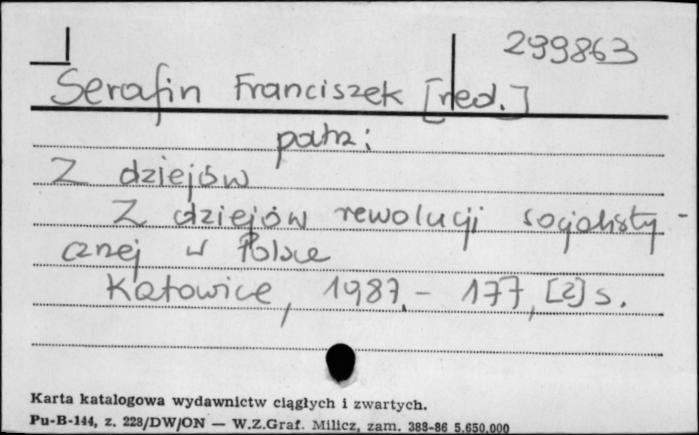 299863
Serafin Franciszek [red.]
patrz:
Z dziejów
Z dziejów rewolucji socjalisty-
cznej w Polsce
Katowice, 1987. - 177, [2] s.
Karta katalogowa wydawnictw ciągłych i zwartych.
Pu-B-144, z. 228/DW/ON — W.Z.Graf. Milicz, zam. 388-86 5.650.000